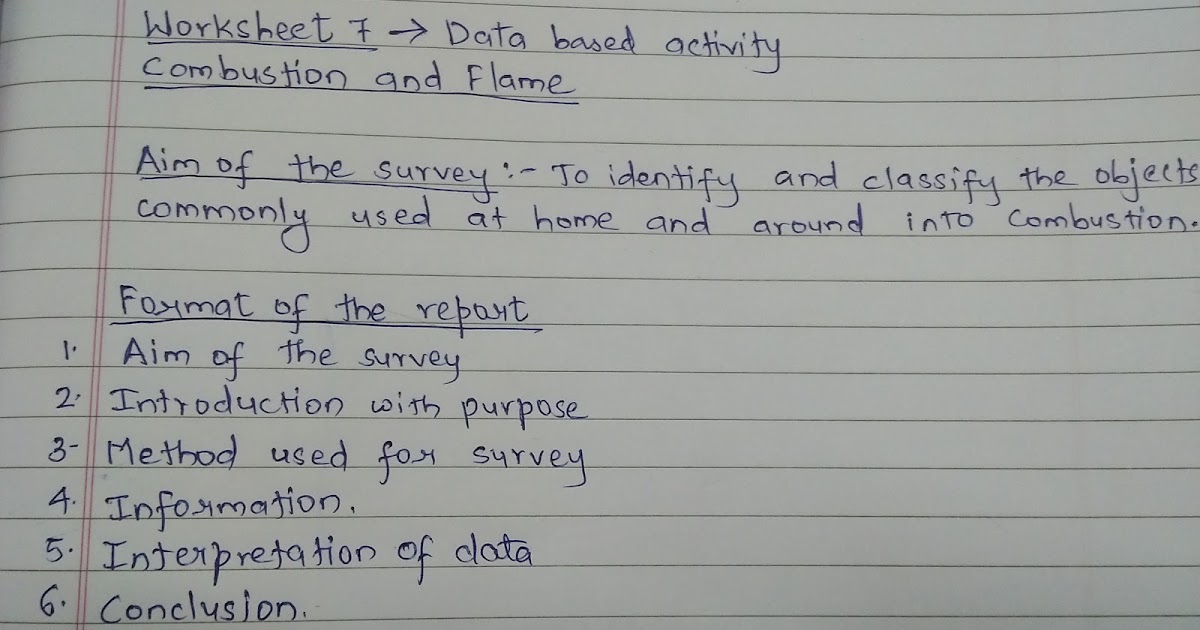 Worksheet 7 → Data based activity
Combustion and Flame
Aim of the survey :- To identify and classify the objects
commonly used at home and around into combustion.
Format of the report
1. Aim of the survey
2. Introduction with purpose
3- Method used for survey
4. Information.
5. Interpretation of data
6. Conclusion.